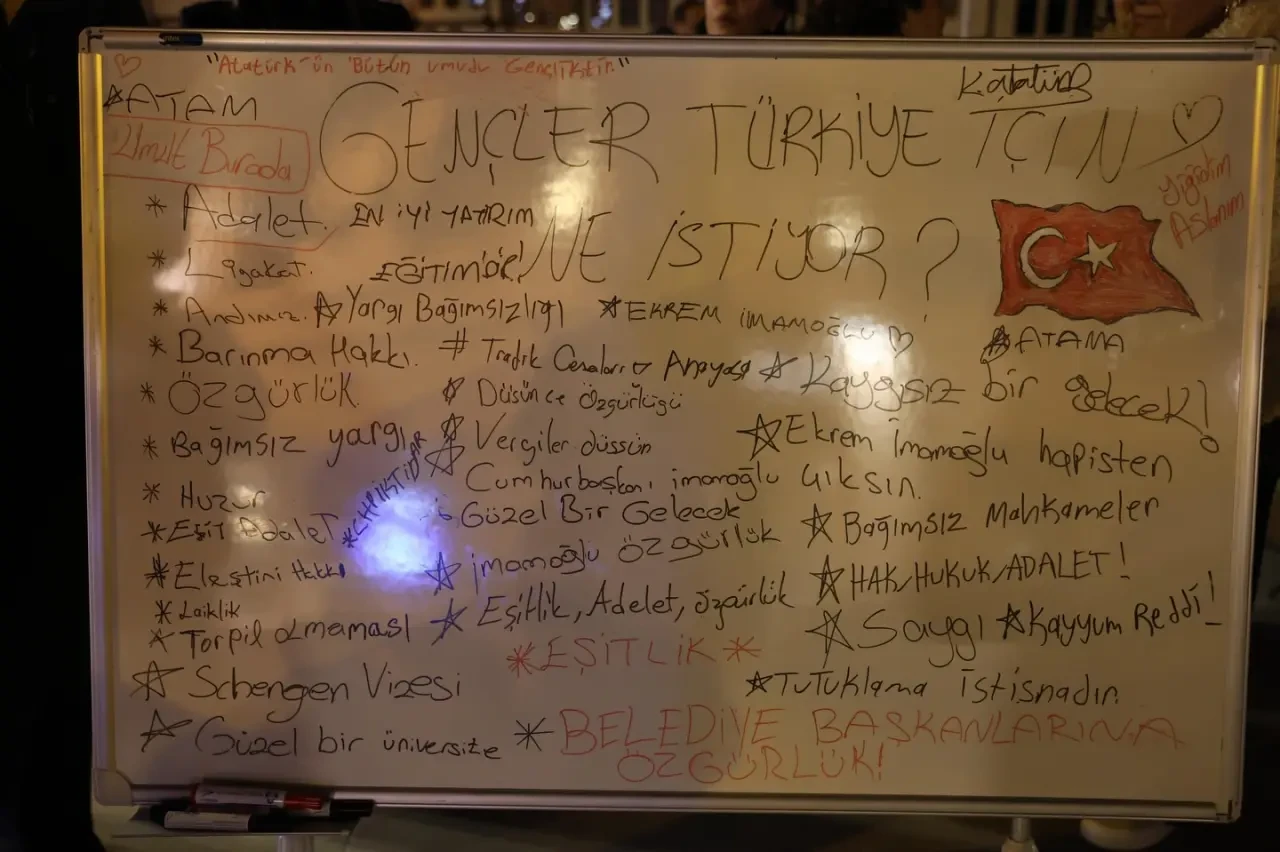 "Atatürk-ün Bütün umudu Gençliktir."
ATAM
Umut Burada
GENÇLER TÜRKİYE İÇİN
NE İSTİYOR?
Yiğidim
Aslanım
* Adalet.
EN İYİ YATIRIM
EĞİTİMDİR!
* Liyakat.
* Andımız.
Yargı Bağımsızlığı
* EKREM İMAMOĞLU
* Barınma Hakkı.
# Trafik Cezaları
ATAMA
Kaygısız bir gelecek!
* ÖZgürlük
Düşünce Özgürlüğü
* Bağımsız yargı
Vergiler düşsün
Ekrem İmamoğlu hapisten
çıksın.
Cumhurbaşkanı imamoğlu
* Huzur
*CHP İKTİDAR
Güzel Bir Gelecek
Bağımsız Mahkameler
*EŞİT ADALET
imamoğlu özgürlük
*Eleştiri Hakkı
HAK, HUKUK, ADALET!
* Laiklik
Eşitlik, Adelet, özgürlük
* Torpil olmaması
Saygı
Kayyum Reddi!
*EŞİTLİK*
Schengen Vizesi
TUTUKLAMA İstisnadır.
Güzel bir üniversite
* BELEDİYE BAŞKANLARINA
ÖZGÜRLÜK!